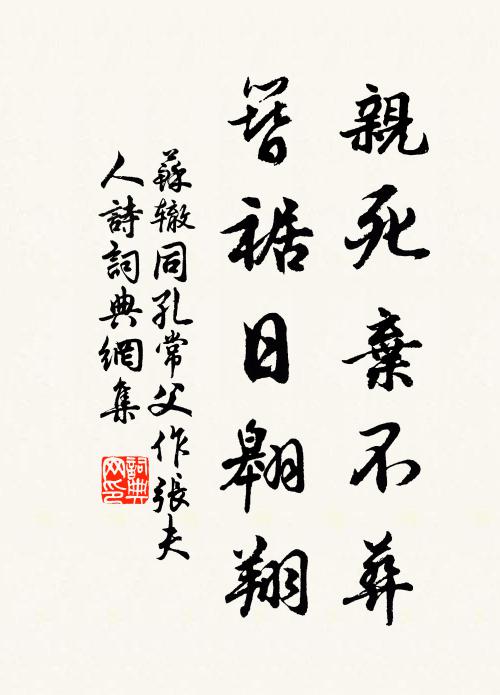 親死棄不葬
簪裾日翱翔
蘇辙同孔常父作張夫
人詩詞典網集
詞典
网印